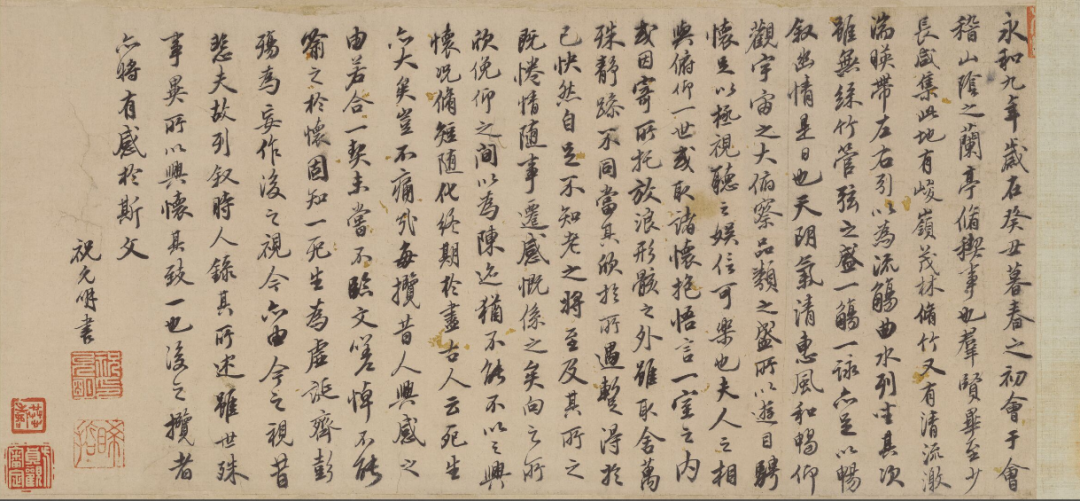 永和九年歲在癸丑暮春之初會于會
稽山陰之蘭亭脩稧事也羣賢畢至少
長咸集此地有峻嶺茂林脩竹又有清流激
湍暎帶左右引以為流觴曲水列坐其次
雖無絲竹管弦之盛一觴一詠亦足以暢
叙幽情是日也天朗氣清惠風和暢仰
觀宇宙之大俯察品類之盛所以遊目騁
懷足以極視聽之娛信可樂也夫人之相
與俯仰一世或取諸懷抱悟言一室之內
或因寄所托放浪形骸之外雖取舍萬
殊靜躁不同當其欣於所遇蹔得於
己怏然自足不知老之將至及其所之
既惓情随事遷感慨係之矣向之所
欣俛仰之間以為陳迹猶不能不以之興
懷況脩短随化終期於盡古人云死生
亦大矣豈不痛哉每攬昔人興感之
由若合一契未嘗不臨文嗟悼不能
喻之於懷固知一死生為虛誕齊彭
殤為妄作後之視今亦由今之視昔
悲夫故列叙時人錄其所述雖世殊
事異所以興懷其致一也後之攬者
亦將有感於斯文
祝允明書